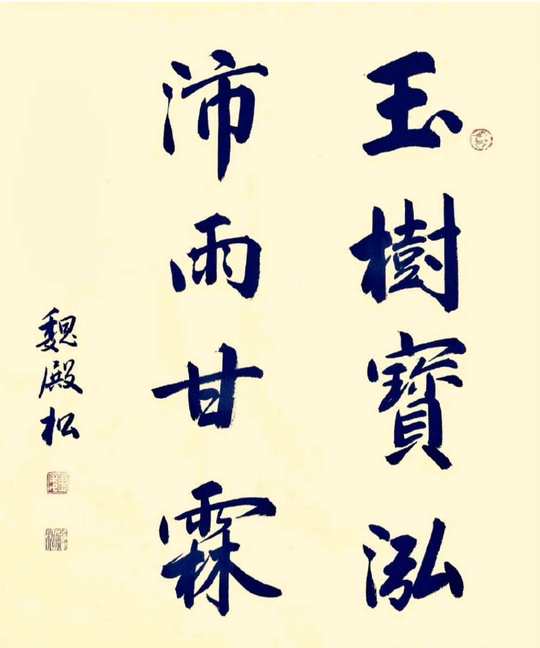 玉樹寶泓
沛雨甘霖
魏殿松